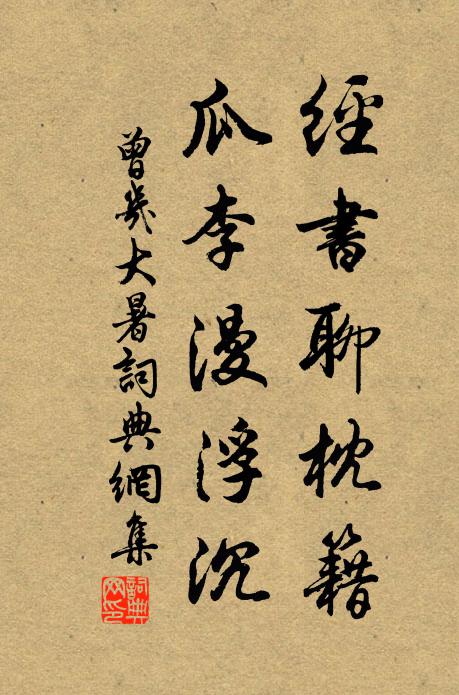 經書聊枕籍
瓜李漫浮沉
曾幾大暑詞典網集
詞典網印